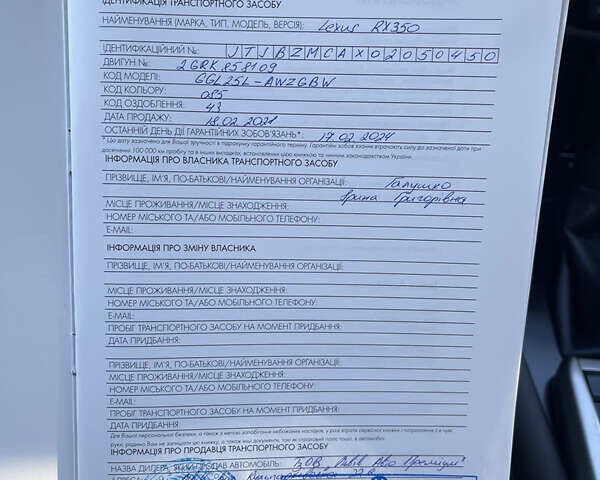 ІДЕНТИФІКАЦІЯ ТРАНСПОРТНОГО ЗАСОБУ
НАЙМЕНУВАННЯ (МАРКА, ТИП, МОДЕЛЬ, ВЕРСІЯ): Lexus RX350
ІДЕНТИФІКАЦІЙНИЙ №: JTJBZMCAX02050450
ДВИГУН №: 2GRK858109
КОД МОДЕЛІ: GGL25L-AWZGBW
КОД КОЛЬОРУ: 085
КОД ОЗДОБЛЕННЯ: 43
ДАТА ПРОДАЖУ: 18.02.2021
ОСТАННІЙ ДЕНЬ ДІЇ ГАРАНТІЙНИХ ЗОБОВ'ЯЗАНЬ*: 17.02.2024
* Цю дату зазначено для Вашої зручності в підрахунку гарантійного терміну. Гарантійні зобов'язання втрачають силу до зазначеної дати при
досягненні 100 000 км пробігу та в інших випадках, встановлених цією книжкою та чинним законодавством України.
ІНФОРМАЦІЯ ПРО ВЛАСНИКА ТРАНСПОРТНОГО ЗАСОБУ
ПРІЗВИЩЕ, ІМ'Я, ПО-БАТЬКОВІ/НАЙМЕНУВАННЯ ОРГАНІЗАЦІЇ: Галушко
Ірина Григорівна
МІСЦЕ ПРОЖИВАННЯ/МІСЦЕ ЗНАХОДЖЕННЯ:
НОМЕР МІСЬКОГО ТА/АБО МОБІЛЬНОГО ТЕЛЕФОНУ:
E-MAIL:
ІНФОРМАЦІЯ ПРО ЗМІНУ ВЛАСНИКА
ПРІЗВИЩЕ, ІМ'Я, ПО-БАТЬКОВІ/НАЙМЕНУВАННЯ ОРГАНІЗАЦІЇ:
МІСЦЕ ПРОЖИВАННЯ/МІСЦЕ ЗНАХОДЖЕННЯ:
НОМЕР МІСЬКОГО ТА/АБО МОБІЛЬНОГО ТЕЛЕФОНУ:
E-MAIL:
ПРОБІГ ТРАНСПОРТНОГО ЗАСОБУ НА МОМЕНТ ПРИДБАННЯ:
ДАТА ПРИДБАННЯ:
ПРІЗВИЩЕ, ІМ'Я, ПО-БАТЬКОВІ/НАЙМЕНУВАННЯ ОРГАНІЗАЦІЇ:
МІСЦЕ ПРОЖИВАННЯ/МІСЦЕ ЗНАХОДЖЕННЯ:
НОМЕР МІСЬКОГО ТА/АБО МОБІЛЬНОГО ТЕЛЕФОНУ:
E-MAIL:
ПРОБІГ ТРАНСПОРТНОГО ЗАСОБУ НА МОМЕНТ ПРИДБАННЯ:
ДАТА ПРИДБАННЯ:
Для Вашої персональної безпеки, а також з метою запобігання небажаних наслідків, у разі втрати сервісної книжки
ІНФОРМАЦІЯ ПРО ПРОДАВЦЯ ТРАНСПОРТНОГО ЗАСОБУ
НАЗВА ДИЛЕРА, ЯКИЙ ПРОДАВ АВТОМОБІЛЬ: ТОВ Львів Авто Преміум"